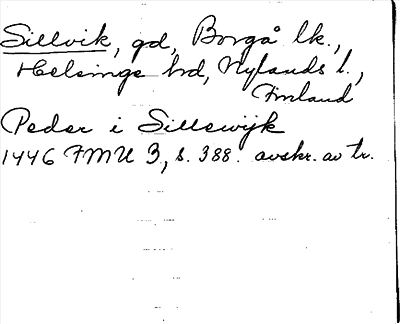 Sillvik, gd, Borgå lk.,
Helsinge hd, Nylands l.,
Finland
Peder i Sillewijk
1446 FMU 3, s. 388. avskr. av tr.